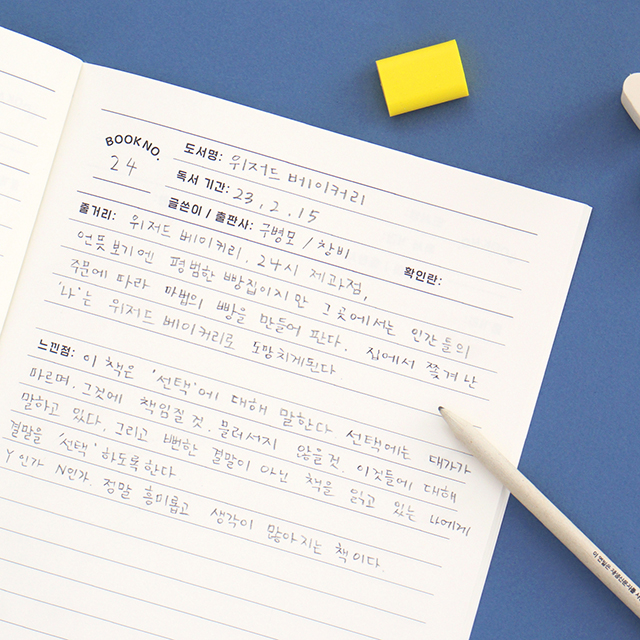 BOOK NO.
24
도서명: 위저드 베이커리
독서 기간: 23. 2. 15
글쓴이 / 출판사: 구병모 / 창비
확인란:
줄거리: 위저드 베이커리. 24시 제과점,
언뜻 보기엔 평범한 빵집이지만 그곳에서는 인간들의
주문에 따라 마법의 빵을 만들어 판다. 집에서 쫓겨난
'나'는 위저드 베이커리로 도망치게된다.
느낀점: 이 책은 '선택'에 대해 말한다. 선택에는 대가가
따르며, 그것에 책임질 것, 물러서지 않을것. 이것들에 대해
말하고 있다. 그리고 뻔한 결말이 아닌 책을 읽고 있는 나에게
결말을 '선택' 하도록한다
Y인가 N인가. 정말 흥미롭고 생각이 많아지는 책이다.
이 연필은 재생신문지를